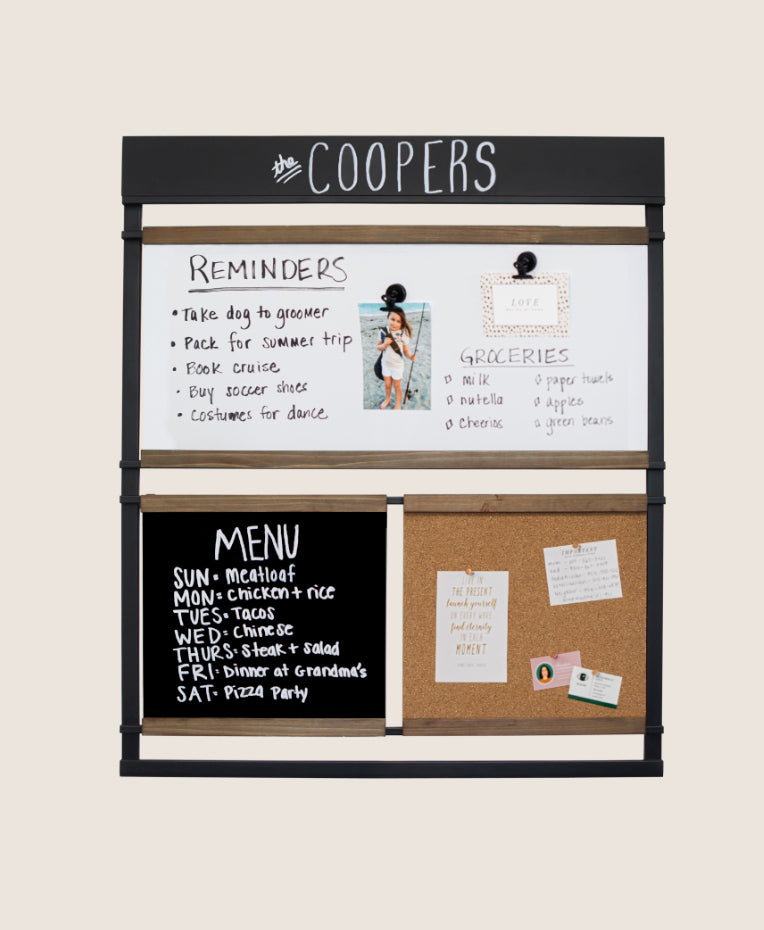 the COOPERS
REMINDERS
• Take dog to groomer
• Pack for summer trip
• Book cruise
• Buy soccer shoes
• Costumes for dance
LOVE
GROCERIES
milk
nutella
Cheerios
paper towels
apples
green beans
MENU
SUN= Meatloaf
MON= Chicken + rice
TUES= Tacos
WED= Chinese
THURS= Steak + Salad
FRI= Dinner at Grandma's
SAT= Pizza Party
LIVE IN
THE PRESENT
launch yourself
ON EVERY WAVE
find eternity
IN EACH
MOMENT
IMPORTANT